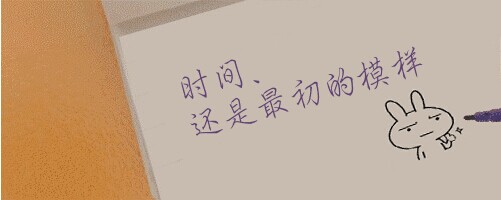 时间、
还是最初的模样